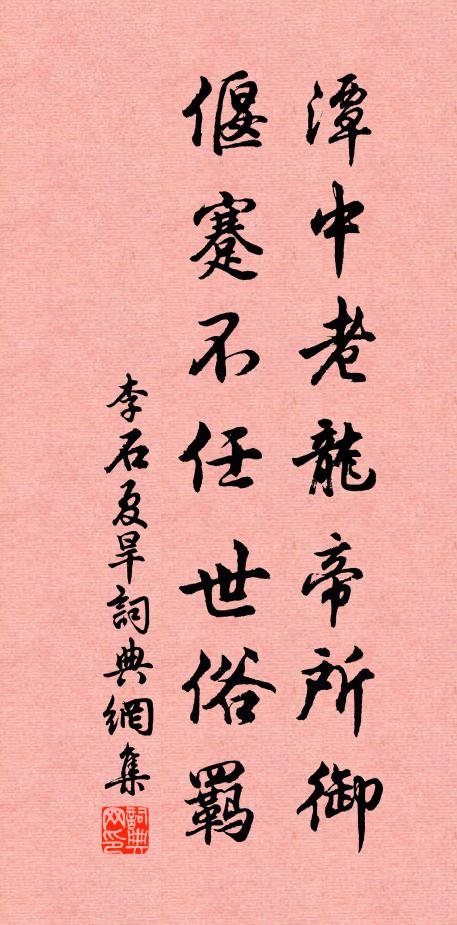 潭中老龍帝所御
偃蹇不任世俗羁
李石夏旱詞典網集
詞典網印